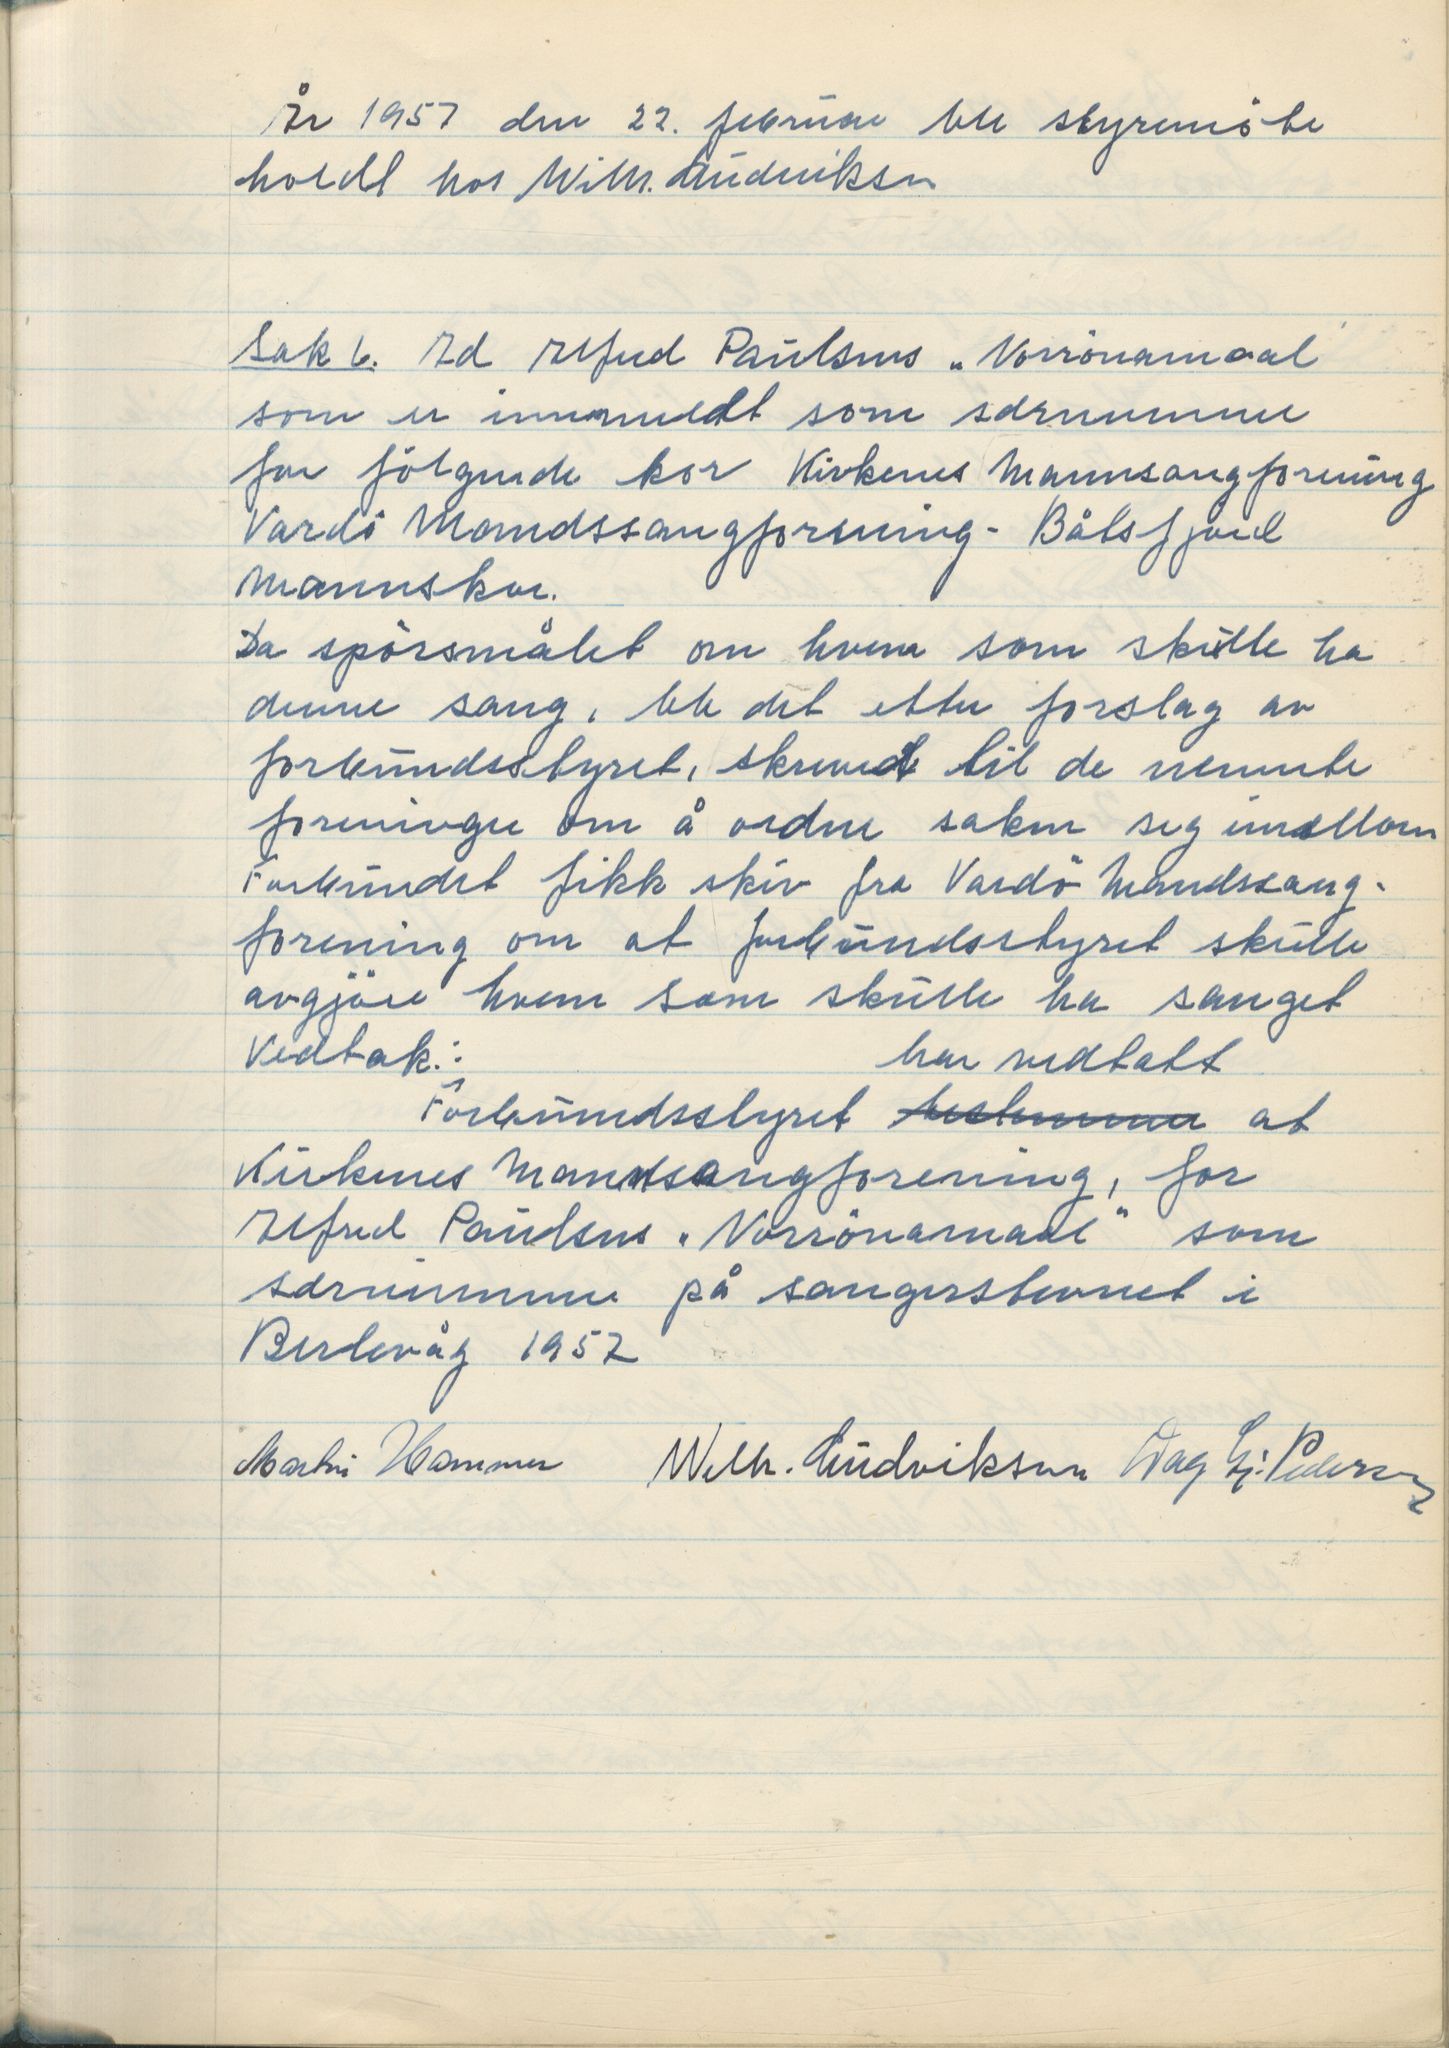 År 1957 den 22. februar ble styremöte
holdt hos Wilh. Ludviksen
Sak 6. Ad Alfred Paulsens „Norrönamaal
som er innmeldt som særnummer
for fölgende kor Kirkenes Mannsangforening
Vardö Mandssangforening - Båtsfjord
Mannskor.
Da spörsmålet om hvem som skulle ha
denne sang, ble det etter forslag av
forbundsstyret, skrevet til de nevnte
foreninger om å ordne saken seg imellom
Forbundet fikk skiv fra Vardö Mandssang-
forening om at forbundsstyret skulle
avgjöre hvem som skulle ha sanget
Vedtak:
har vedtatt
Forbundsstyret bestemmer at
Kirkenes Mannsangforening, for
Alfred Paulsens „Norrönamaal" som
særnummer på sangerstevnet i
Berlevåg 1957
Martin Hammer Wilh. Ludviksen Dag Hj. Pedersen